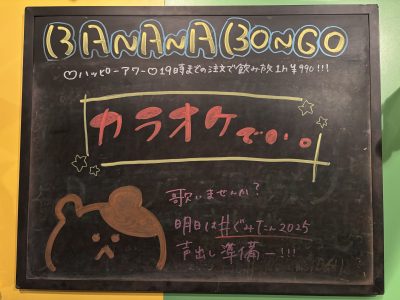 BANANA BONGO
♡ハッピーアワー♡19時までの注文で飲み放1h¥990!!!
カラオケでい。
歌いませんか?
明日は#ぐみてん2025
声出し準備ー!!!